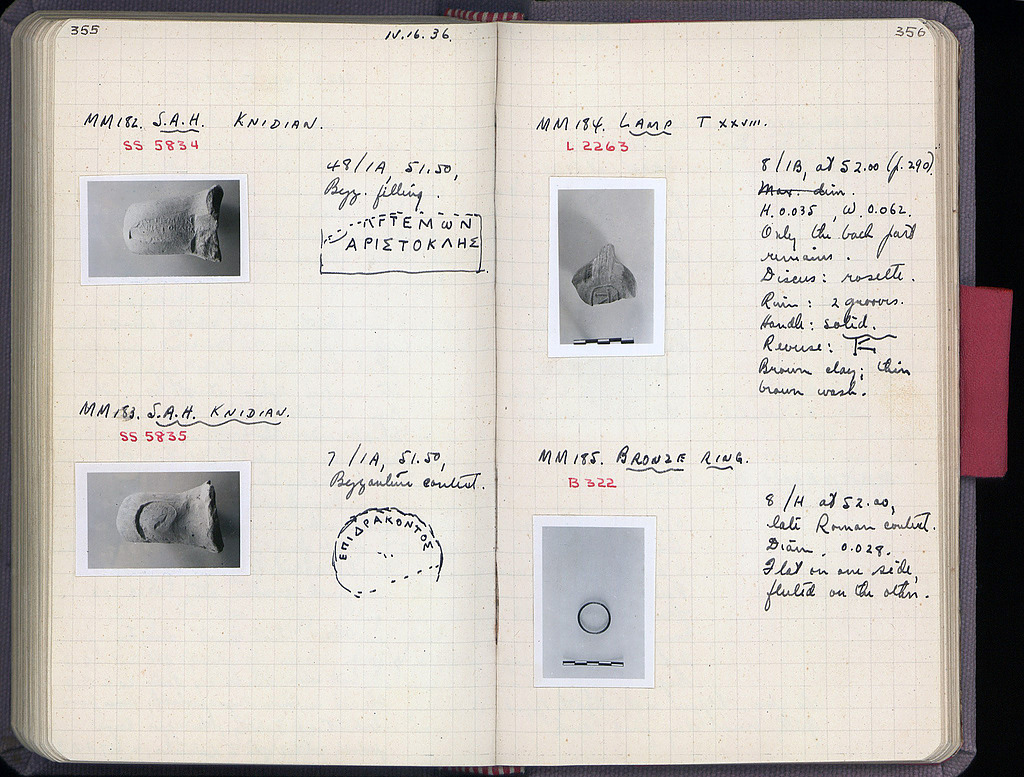 355
IV.16.36.
MM182. S.A.H. KNIDIAN.
SS 5834
48/1A, 51.50,
Byz. filling.
ΑΡΤΕΜΩΝ
ΑΡΙΣΤΟΚΛΗΣ
MM183. S.A.H. KNIDIAN.
SS 5835
7/1A, 51.50,
Byzantine context.
ΕΠΙΔΡΑΚΟΝΤΟΣ
356
MM184. LAMP T XXVIII.
L 2263
8/1B, at 52.00 (p. 290).
Max. dim.
H. 0.035, W. 0.062.
Only the back part
remains.
Discus: rosette.
Rim: 2 grooves.
Handle: solid.
Reverse:
Brown clay; thin
brown wash.
MM185. BRONZE RING.
B 322
8/H at 52.00,
late Roman context.
Diam. 0.028.
Flat on one side,
fluted on the other.